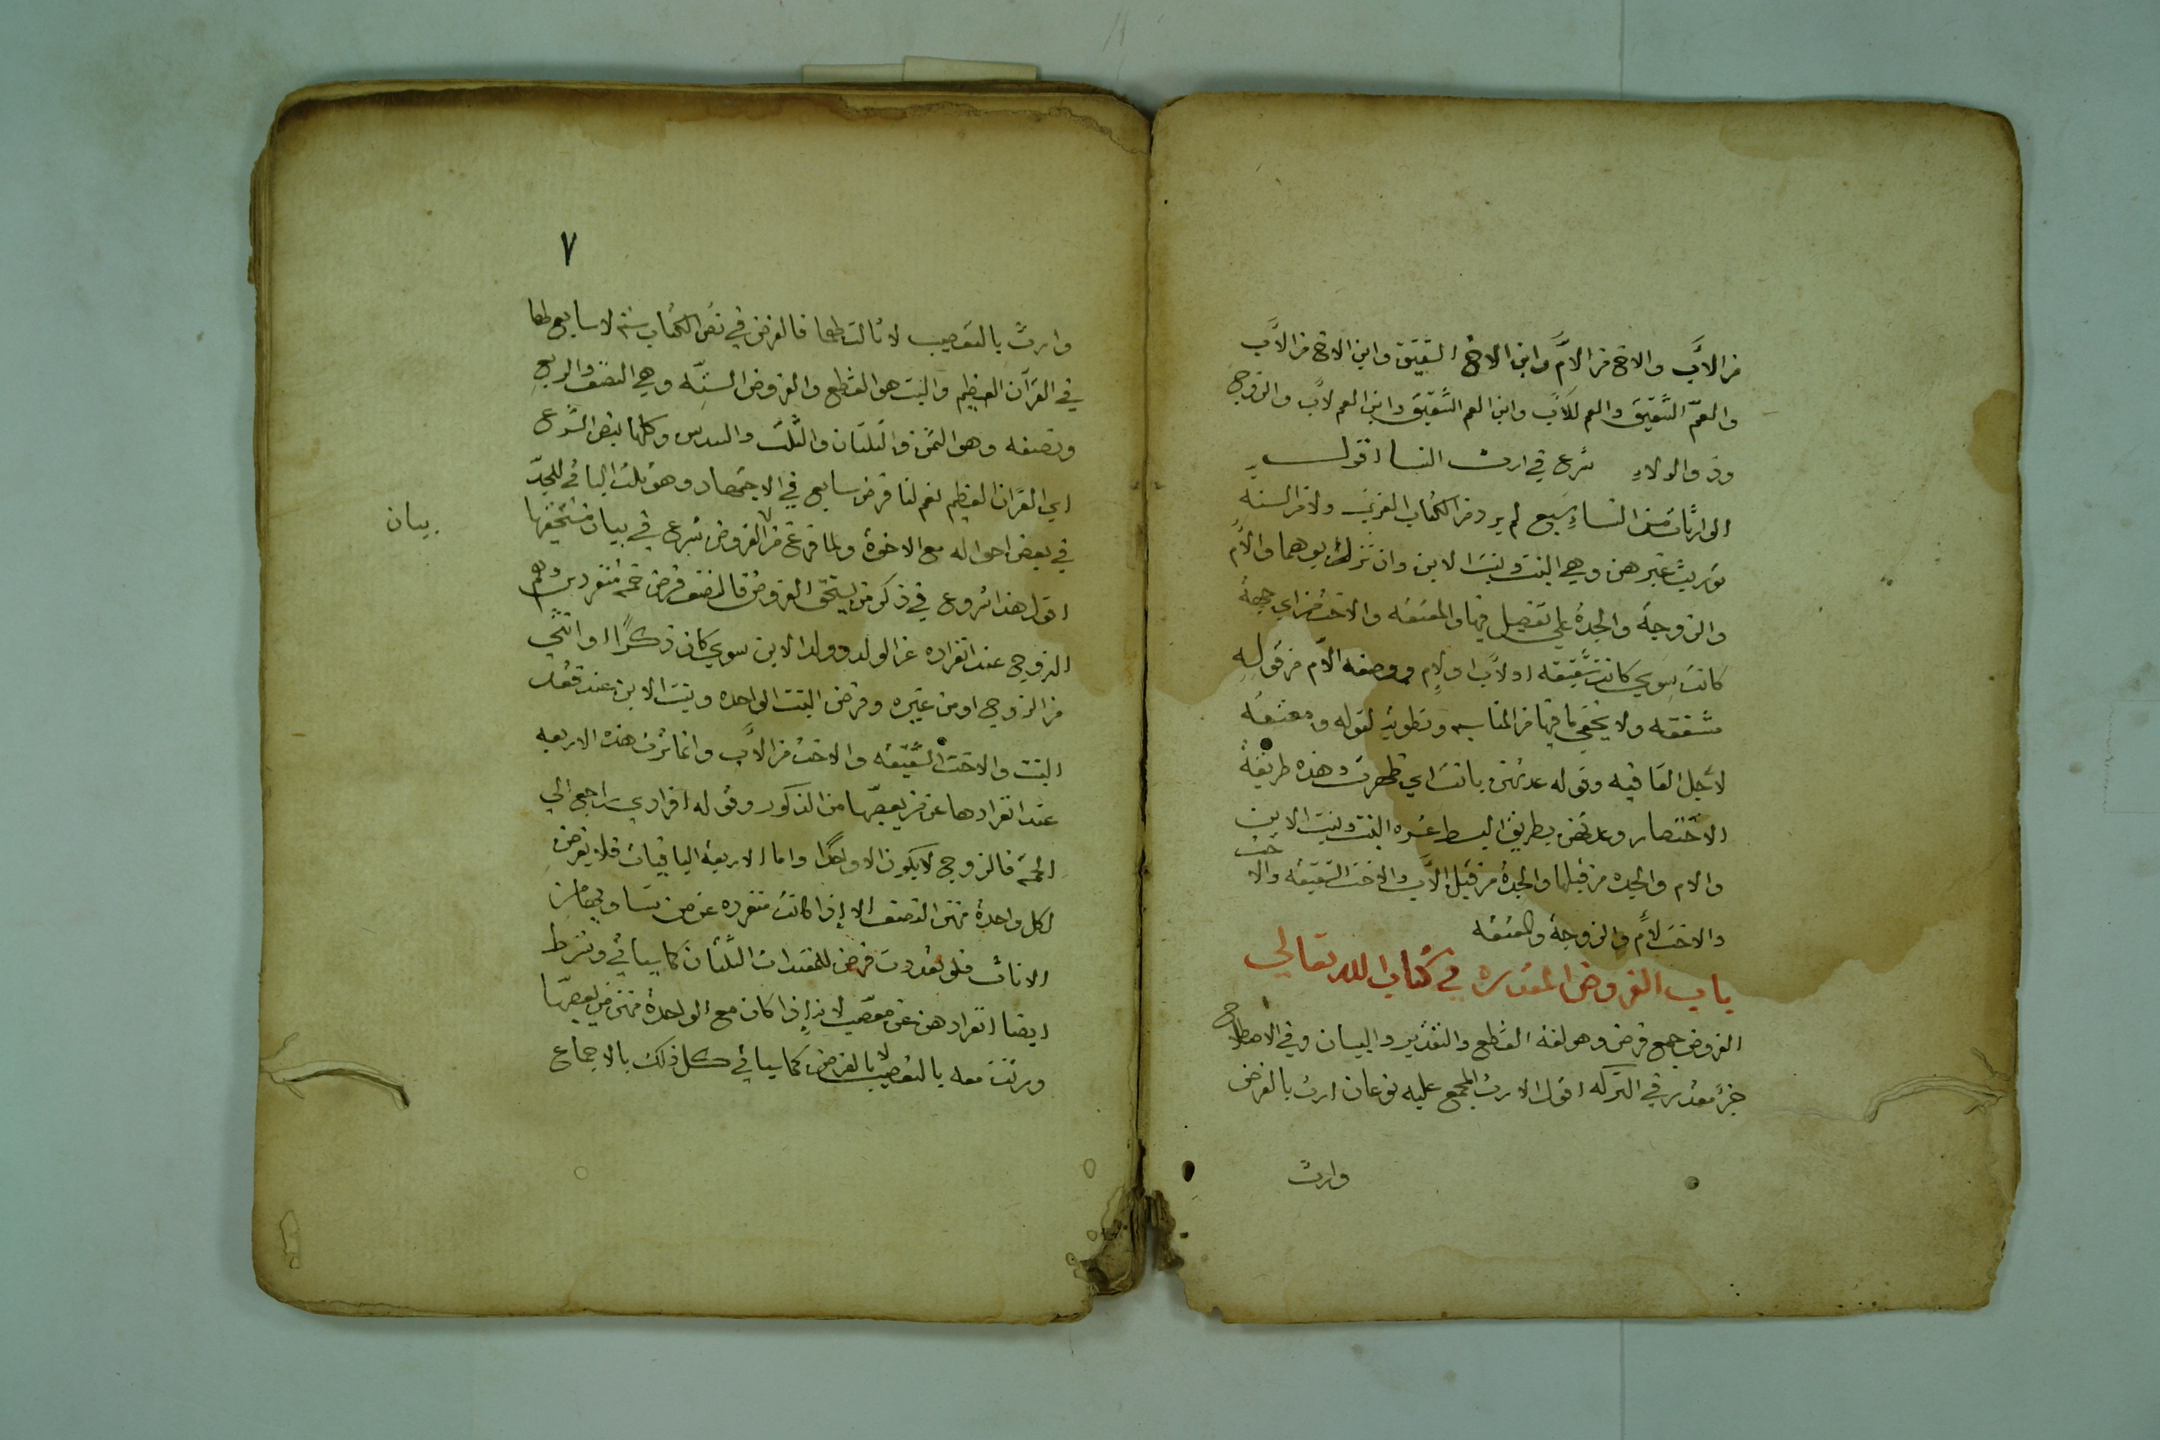 من الاب والاخ من الامّ وابن الاخ الشقيق وابن الاخ من الاب
والعمّ الشقيق والعم للاب وابن العم الشقيق وابن العم لاب والزوج
وذو الولاء شرع في ارث النسا اقول
الوارثات من النساء سبع لم يرد من الكتاب العزيز ولا من السنه
توريث غيرهن وهي البنت وبنت الابن وان نزل ابوهما والام
والزوجة والجدة علي تفصيل فيها والمعتقه والاخت من اي جهة
كانت سوي كانت شقيقه او لاب او لام ووصفه الام من قوله
مشفقه ولا يخفي ما فيها من المناسبه وتطويه لقوله ومعتقه
لاجل القافيه وقوله عدتهن بانت اي ظهرت وهذه طريقة
الاختصار وعدتهن بطريق البسط عشره البنت وبنت الابن
والام والجده من قبلها والجدة من قبل الاب والاخت الشقيقه والاخت
والاخت لام والزوجة والمعتقه
باب الفروض المقدره في كتاب الله تعالي
الفروض جمع فرض وهو لغة القطع والتقدير والبيان وفي الاصطلاح
جزء مقدر في التركه اقول الارث المجمع عليه نوعان ارث بالفرض
وارث
٧
وارث بالتعصيب لا ثالث لهما فالفرض في نص الكتاب سته لا سابع لها
في القرآن العظيم والبت هو القطع والفروض السته وهي النصف والربع
ونصفه وهو الثمن والثلثان والثلث والسدس وكلها بنص الشرع
اي القران العظيم نعم لنا فرض سابع في الاجتهاد وهو ثلث الباقي للجدّ
في بعض احواله مع الاخوة ولما فرغ من الفروض شرع في بيان مستحقيها
بيان
اقول هذا شروع في ذكر من يستحق الفروض فالنصف فرض خمسة منفردين وهم
الزوج عند انفراده عن الولد وولد الابن سوي كان ذكرًا او انثي
من الزوج او من غيره وفرض البنت الواحده وبنت الابن عند فقد
البنت والاخت الشقيقه والاخت من الاب وانما ترث هذه الاربعه
عند انفرادها عن من يعصبها من الذكور وقوله افرادي راجع الي
الخمسة فالزوج لا يكون الا واحدًا واما الاربعة الباقيات فلا يفرض
لكل واحدة منهن النصف الا إذا كانت منفرده عن من يساويها من
الاناث فلو تعددت فرض للمتعددات الثلثان كما سياتي وشرط
ايضا انفرادهن عن معصب لانه إذا كان مع الواحدة منهن من يعصبها
ورثت معه بالتعصيب لا بالفرض كما سياتي كل ذلك بالاجماع